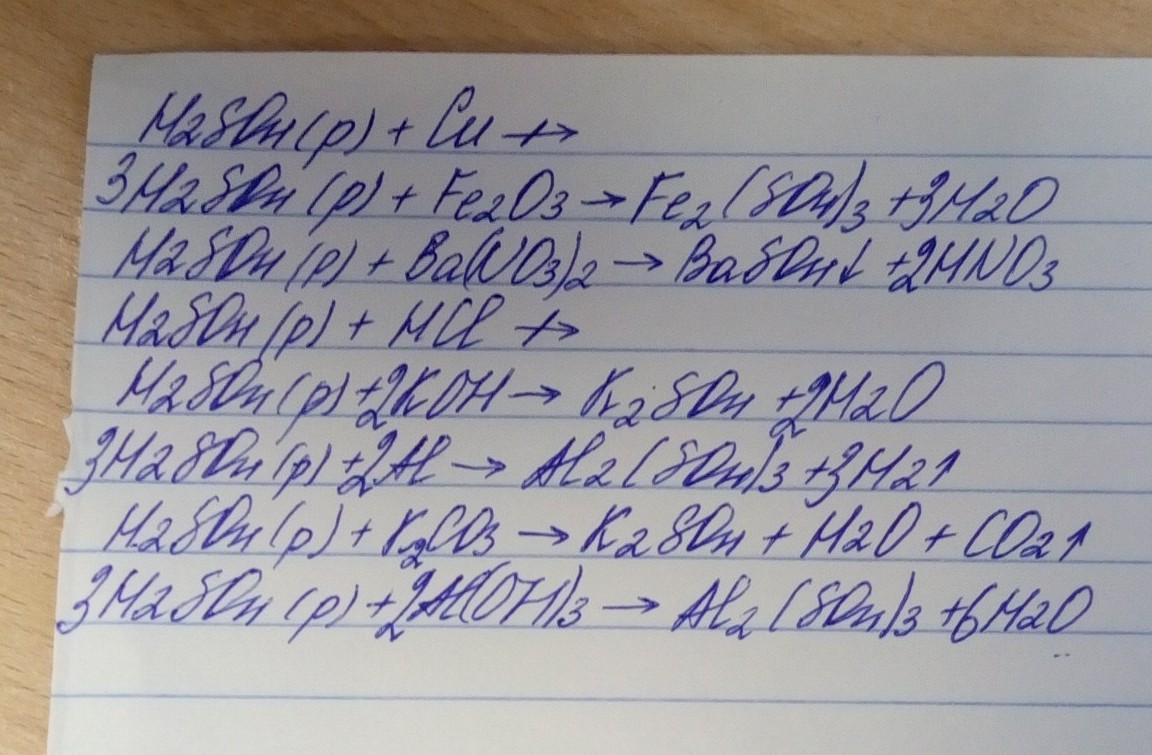 H2SO4 (р) + Cu ↛
3H2SO4 (р) + Fe2O3 → Fe2(SO4)3 + 3H2O
H2SO4 (р) + Ba(NO3)2 → BaSO4↓ + 2HNO3
H2SO4 (р) + HCl ↛
H2SO4 (р) + 2KOH → K2SO4 + 2H2O
3H2SO4 (р) + 2Al → Al2(SO4)3 + 3H2↑
H2SO4 (р) + K2CO3 → K2SO4 + H2O + CO2↑
3H2SO4 (р) + 2Al(OH)3 → Al2(SO4)3 + 6H2O